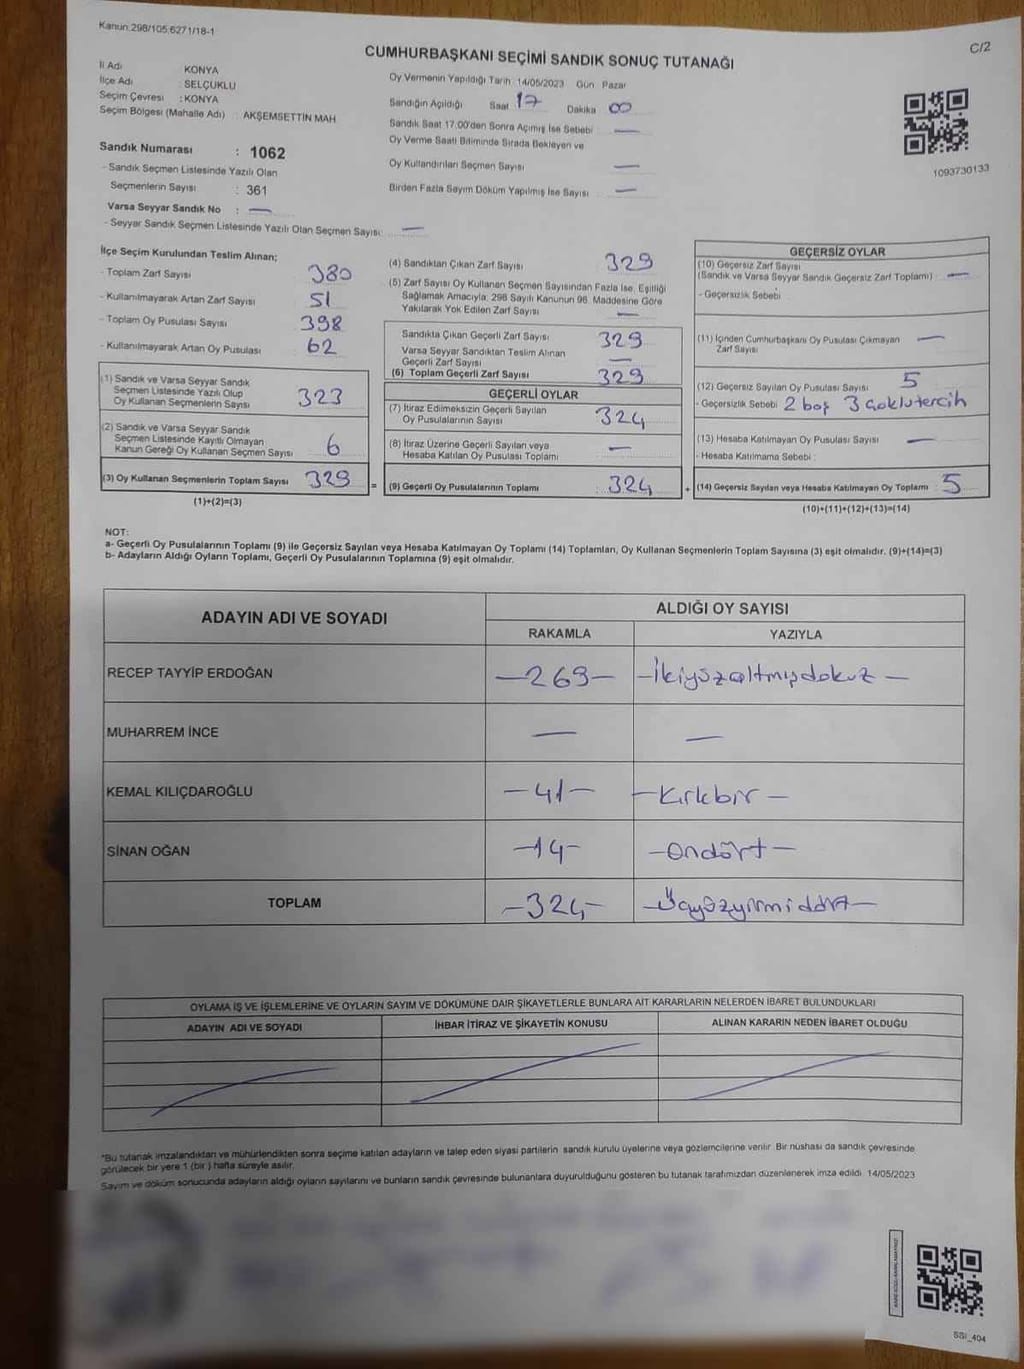 Kanun:298/105,6271/18-1
C/2
CUMHURBAŞKANI SEÇİMİ SANDIK SONUÇ TUTANAĞI
İl Adı : KONYA
İlçe Adı : SELÇUKLU
Seçim Çevresi : KONYA
Seçim Bölgesi (Mahalle Adı) : AKŞEMSETTİN MAH
Sandık Numarası : 1062
- Sandık Seçmen Listesinde Yazılı Olan
Seçmenlerin Sayısı : 361
Varsa Seyyar Sandık No : —
- Seyyar Sandık Seçmen Listesinde Yazılı Olan Seçmen Sayısı: —
Oy Vermenin Yapıldığı Tarih : 14/05/2023 Gün : Pazar
Sandığın Açıldığı Saat 17 Dakika 00
Sandık Saat 17:00'den Sonra Açılmış İse Sebebi —
Oy Verme Saati Bitiminde Sırada Bekleyen ve
Oy Kullandırılan Seçmen Sayısı —
Birden Fazla Sayım Döküm Yapılmış İse Sayısı —
1093730133
İlçe Seçim Kurulundan Teslim Alınan;
- Toplam Zarf Sayısı 380
- Kullanılmayarak Artan Zarf Sayısı 51
- Toplam Oy Pusulası Sayısı 398
- Kullanılmayarak Artan Oy Pusulası 62
(1) Sandık ve Varsa Seyyar Sandık
Seçmen Listesinde Yazılı Olup
Oy Kullanan Seçmenlerin Sayısı 323
(2) Sandık ve Varsa Seyyar Sandık
Seçmen Listesinde Kayıtlı Olmayan
Kanun Gereği Oy Kullanan Seçmen Sayısı 6
(3) Oy Kullanan Seçmenlerin Toplam Sayısı 329 =
(1)+(2)=(3)
(4) Sandıktan Çıkan Zarf Sayısı 329
(5) Zarf Sayısı Oy Kullanan Seçmen Sayısından Fazla İse, Eşitliği
Sağlamak Amacıyla; 298 Sayılı Kanunun 98. Maddesine Göre
Yakılarak Yok Edilen Zarf Sayısı —
Sandıkta Çıkan Geçerli Zarf Sayısı 329
Varsa Seyyar Sandıktan Teslim Alınan
Geçerli Zarf Sayısı —
(6) Toplam Geçerli Zarf Sayısı 329
GEÇERLİ OYLAR
(7) İtiraz Edilmeksizin Geçerli Sayılan
Oy Pusulalarının Sayısı 324
(8) İtiraz Üzerine Geçerli Sayılan veya
Hesaba Katılan Oy Pusulası Toplamı —
(9) Geçerli Oy Pusulalarının Toplamı : 324 +
GEÇERSİZ OYLAR
(10) Geçersiz Zarf Sayısı
(Sandık ve Varsa Seyyar Sandık Geçersiz Zarf Toplamı) : —
- Geçersizlik Sebebi :
(11) İçinden Cumhurbaşkanı Oy Pusulası Çıkmayan —
Zarf Sayısı
(12) Geçersiz Sayılan Oy Pusulası Sayısı 5
- Geçersizlik Sebebi : 2 boş 3 çoklu tercih
(13) Hesaba Katılmayan Oy Pusulası Sayısı —
- Hesaba Katılmama Sebebi :
(14) Geçersiz Sayılan veya Hesaba Katılmayan Oy Toplamı : 5
(10)+(11)+(12)+(13)=(14)
NOT:
a- Geçerli Oy Pusulalarının Toplamı (9) ile Geçersiz Sayılan veya Hesaba Katılmayan Oy Toplamı (14) Toplamları, Oy Kullanan Seçmenlerin Toplam Sayısına (3) eşit olmalıdır. (9)+(14)=(3)
b- Adayların Aldığı Oyların Toplamı, Geçerli Oy Pusulalarının Toplamına (9) eşit olmalıdır.
ADAYIN ADI VE SOYADI ALDIĞI OY SAYISI
RAKAMLA YAZIYLA
RECEP TAYYİP ERDOĞAN —269— —İkiyüzaltmışdokuz—
MUHARREM İNCE — —
KEMAL KILIÇDAROĞLU —41— —Kırkbir—
SİNAN OĞAN —14— —Ondört—
TOPLAM —324— —Üçyüzyirmidört—
OYLAMA İŞ VE İŞLEMLERİNE VE OYLARIN SAYIM VE DÖKÜMÜNE DAİR ŞİKAYETLERLE BUNLARA AİT KARARLARIN NELERDEN İBARET BULUNDUKLARI
ADAYIN ADI VE SOYADI İHBAR İTİRAZ VE ŞİKAYETİN KONUSU ALINAN KARARIN NEDEN İBARET OLDUĞU
*Bu tutanak imzalandıktan ve mühürlendikten sonra seçime katılan adayların ve talep eden siyasi partilerin sandık kurulu üyelerine veya gözlemcilerine verilir. Bir nüshası da sandık çevresinde
görülecek bir yere 1 (bir ) hafta süreyle asılır.
Sayım ve döküm sonucunda adayların aldığı oyların sayılarını ve bunların sandık çevresinde bulunanlara duyurulduğunu gösteren bu tutanak tarafımızdan düzenlenerek imza edildi. 14/05/2023
SSI_404